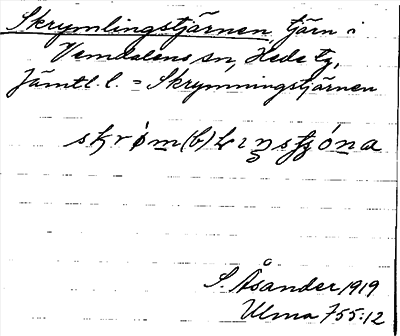 Skrymlingstjärnen, tjärn i
Vemdalens sn, Hede tg,
Jämtl. l. = Skrymningstjärnen
S. Åsander 1919
Ulma 755:12